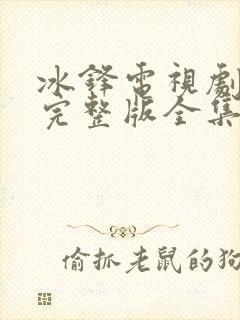 冰鋒電視劇
完整版全集
偷抓老鼠的狗